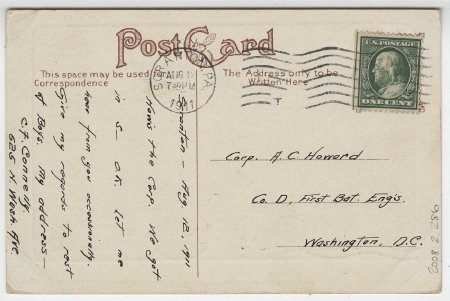 Post Card
This space may be used for
Correspondence
The Address only to be
Written Here
SCRANTON, PA.
AUG 12
7 30 PM
1911
U.S. POSTAGE
ONE CENT
Scranton - Aug 12, 1911
How's the Corp. We got
in S— O.K. Let me
hear from you occasionally.
Give my regards to rest
of Boys. My address—
C. F. Connelly.
626 N. Wash Ave.
Corp. A. F. Howard
Co. D, First Bat. Eng's.
Washington, D.C.
2008.2.286